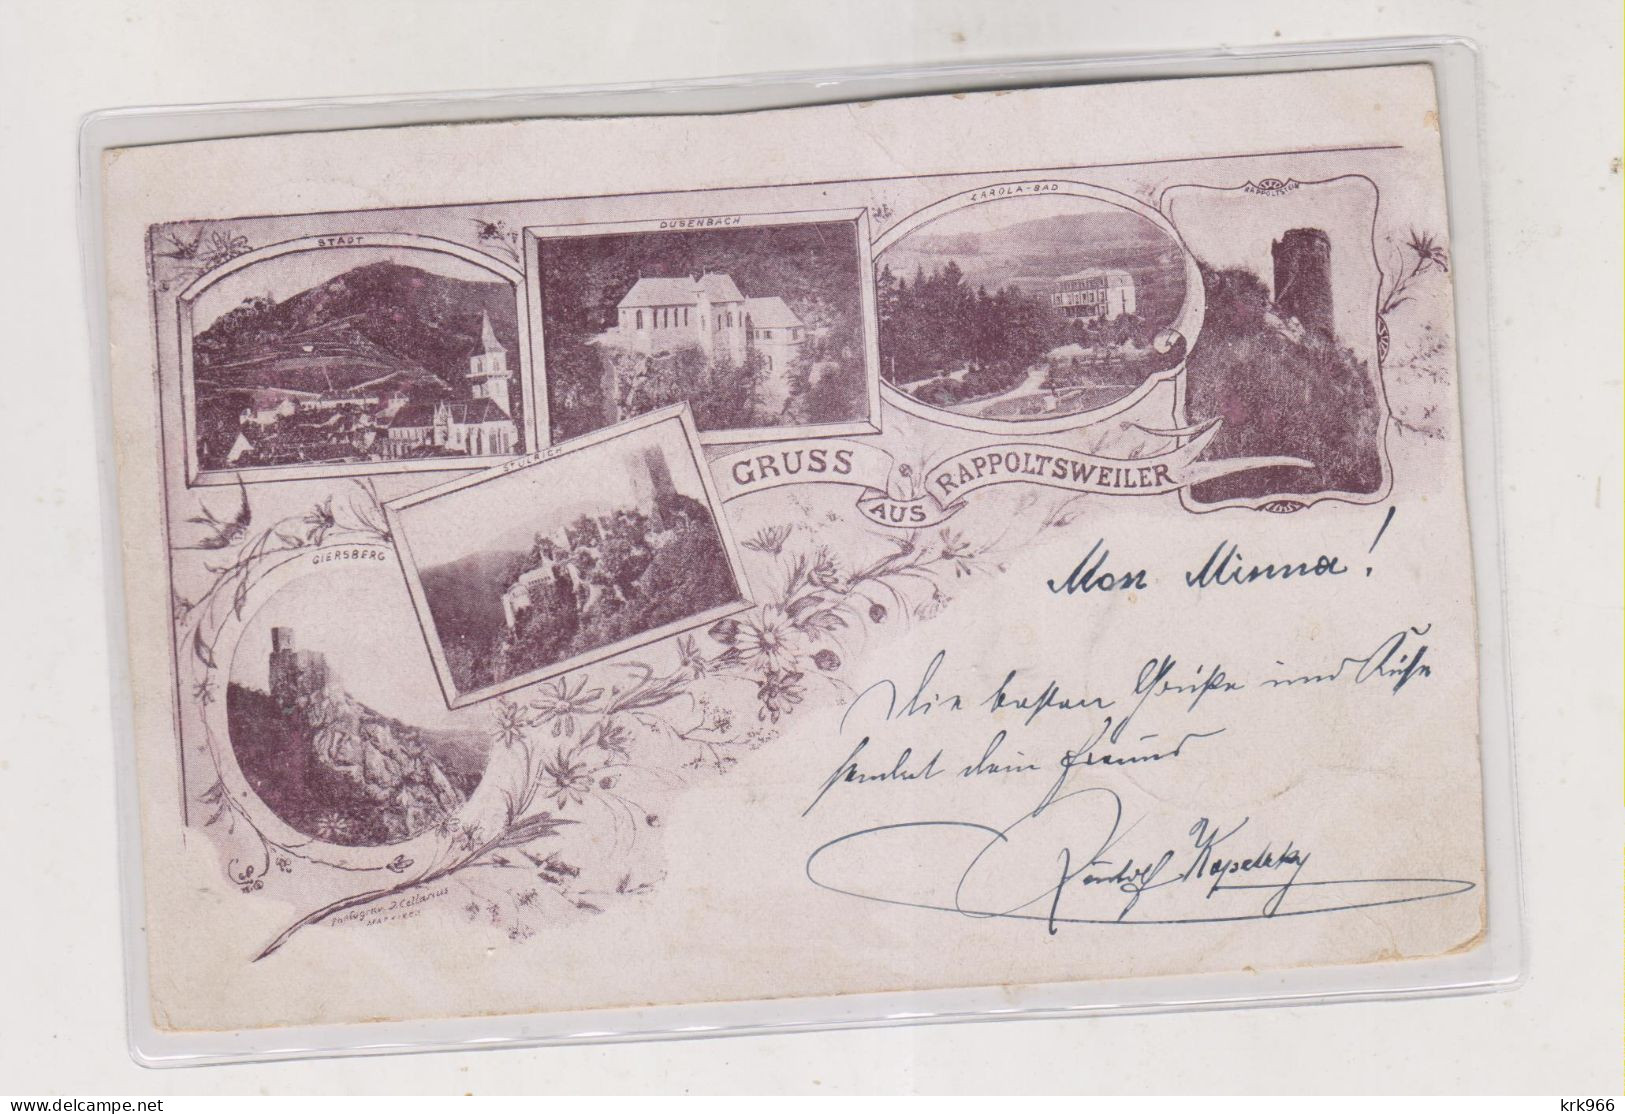 STADT
DUSENBACH
CAROLA-BAD
RAPPOLTSTEIN
ST ULRICH
GIERSBERG
GRUSS
AUS
RAPPOLTSWEILER
Mon Minna!
Die besten Grüße und Küsse
sendet dein Freund
Rudolf
J. Cellarius
Delcampe.net
krk966